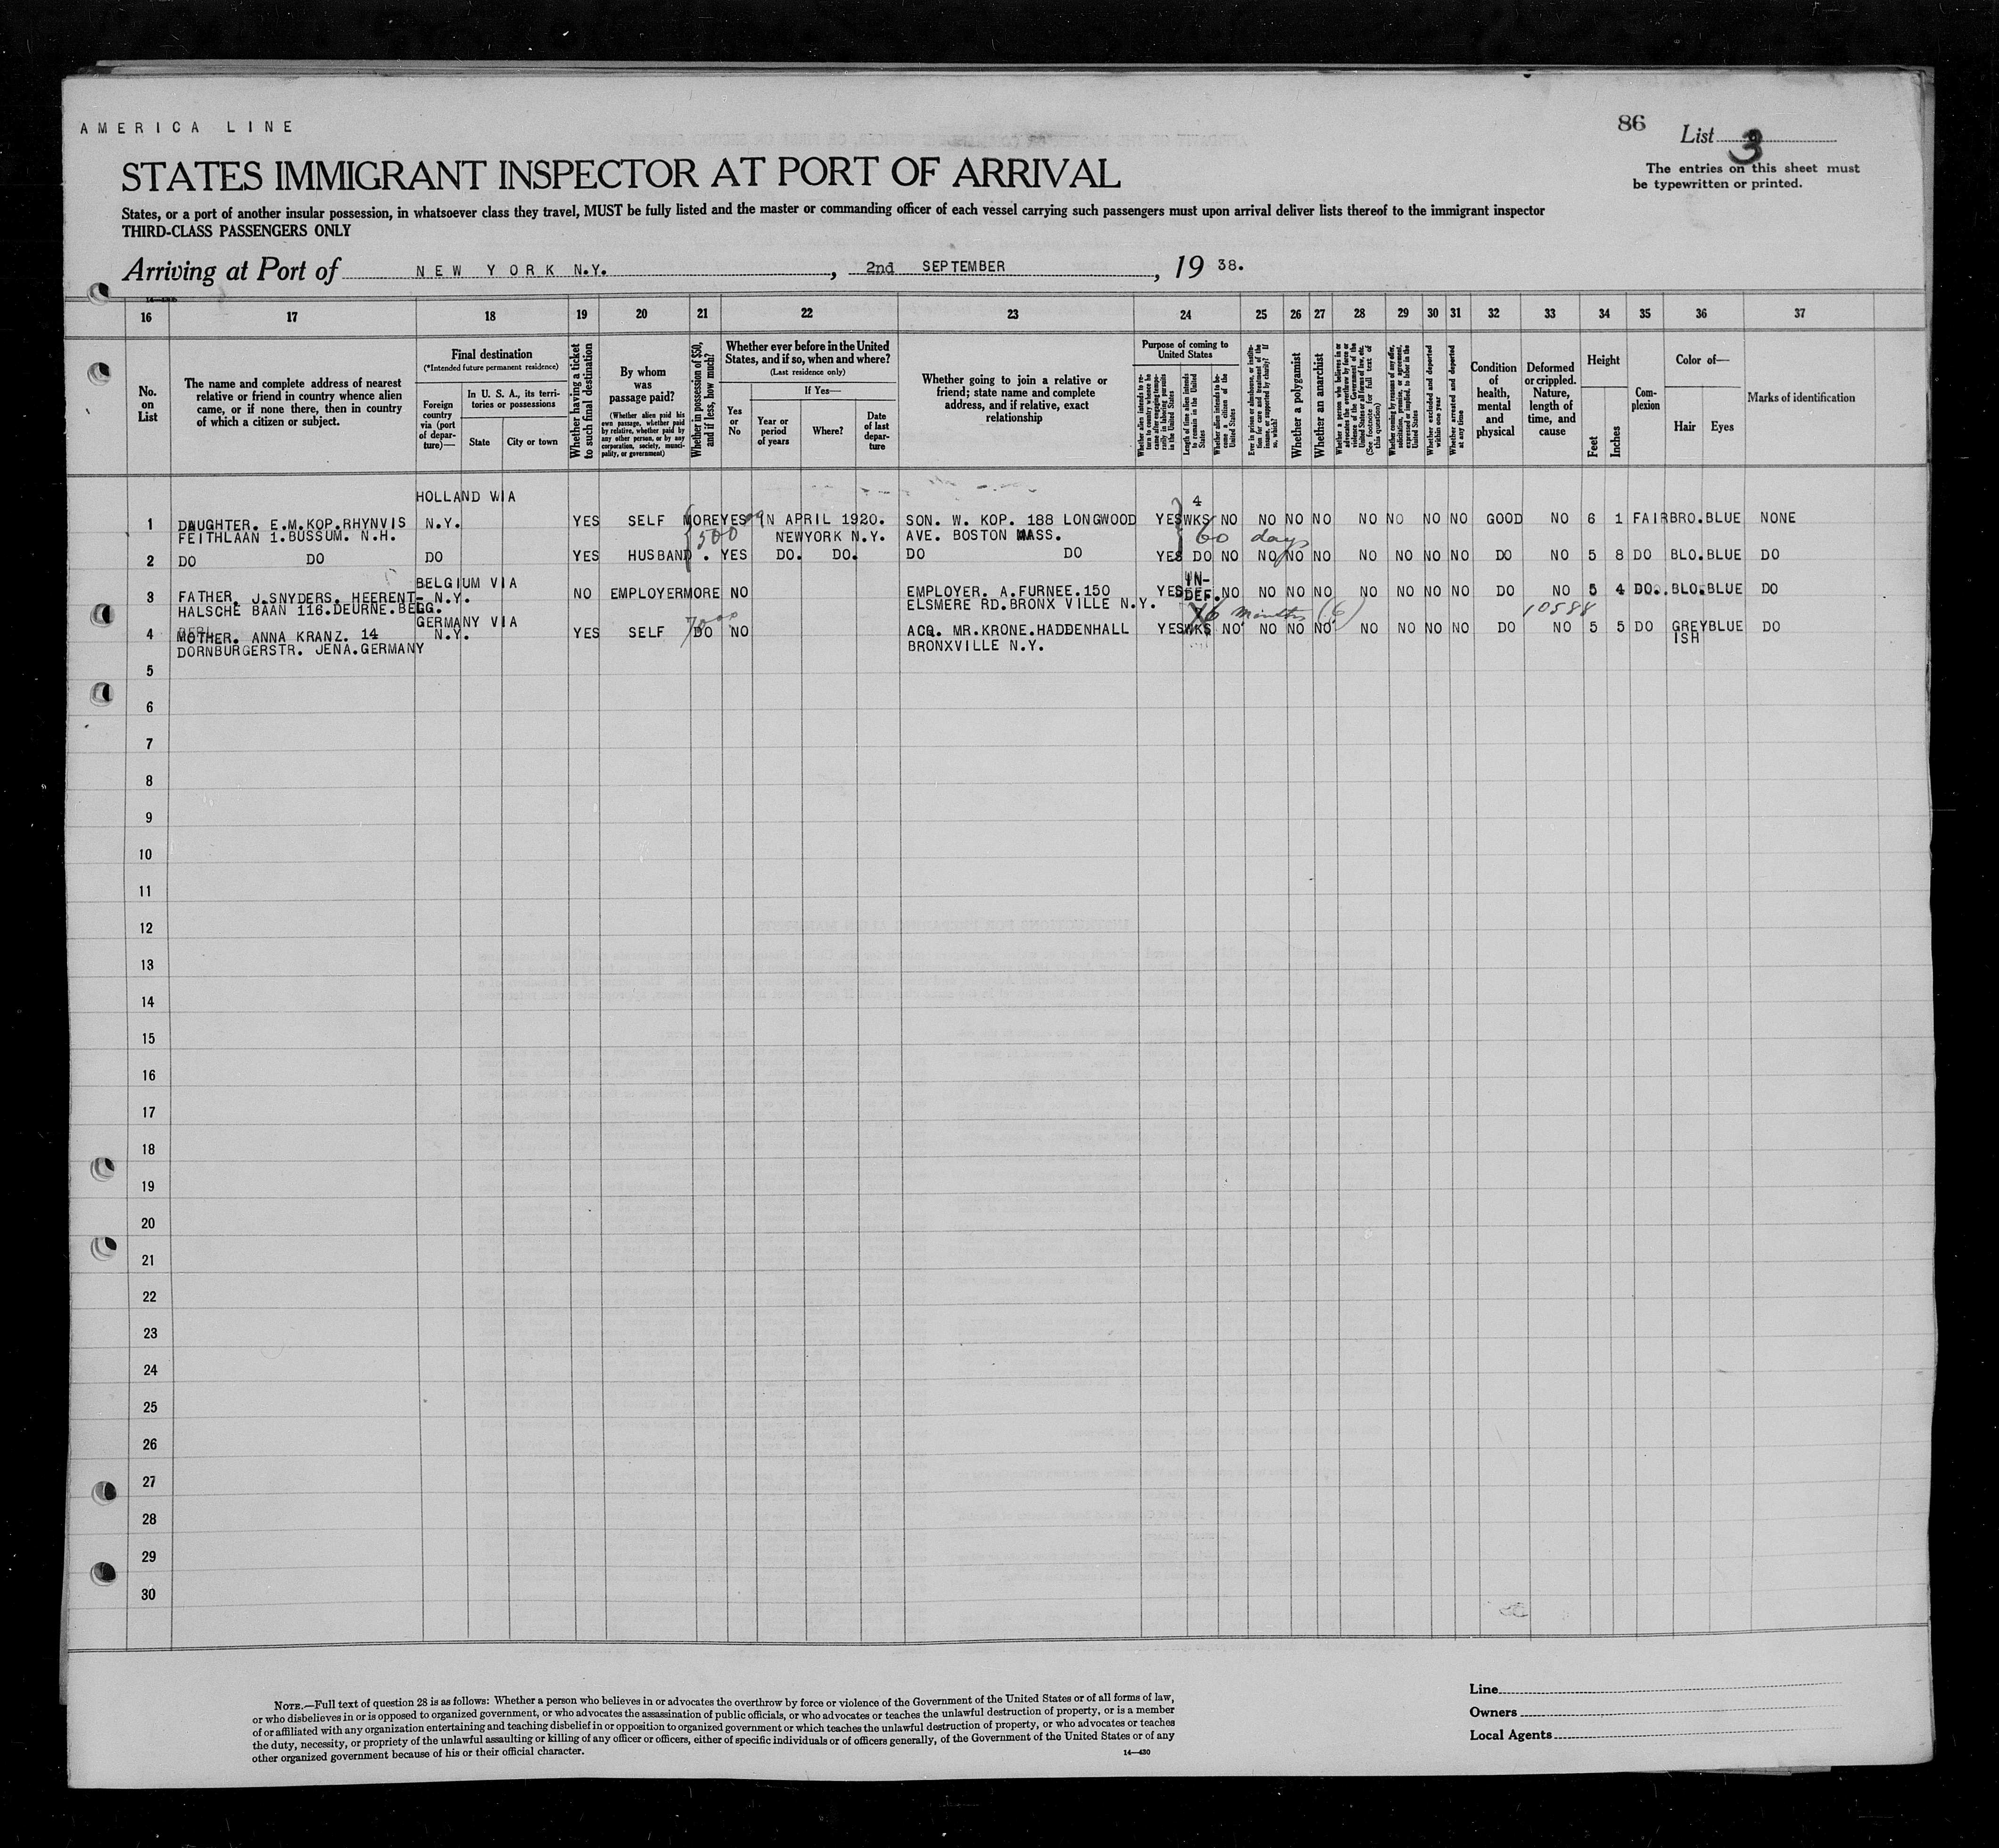 AMERICA LINE
86
List 3
STATES IMMIGRANT INSPECTOR AT PORT OF ARRIVAL
The entries on this sheet must
be typewritten or printed.
States, or a port of another insular possession, in whatsoever class they travel, MUST be fully listed and the master or commanding officer of each vessel carrying such passengers must upon arrival deliver lists thereof to the immigrant inspector
THIRD-CLASS PASSENGERS ONLY
Arriving at Port of NEW YORK N.Y., 2nd SEPTEMBER, 19 38.
16 17 18 19 20 21 22 23 24 25 26 27 28 29 30 31 32 33 34 35 36 37
No. on List
The name and complete address of nearest relative or friend in country whence alien came, or if none there, then in country of which a citizen or subject.
Final destination
(*Intended future permanent residence)
Foreign country via (port of departure)—
In U. S. A., its territories or possessions
State
City or town
Whether having a ticket to such final destination
By whom was passage paid?
(Whether alien paid his own passage, whether paid by relative, whether paid by any other person, or by any corporation, society, municipality, or government)
Whether in possession of $50, and if less, how much?
Whether ever before in the United States, and if so, when and where?
(Last residence only)
Yes or No
If Yes—
Year or period of years
Where?
Date of last departure
Whether going to join a relative or friend; state name and complete address, and if relative, exact relationship
Purpose of coming to United States
Whether alien intends to return to country whence he came after engaging temporarily in laboring pursuits in the United States
Length of time alien intends to remain in the United States
Whether alien intends to become a citizen of the United States
Ever in prison or almshouse, or institution for care and treatment of the insane, or supported by charity? If so, which?
Whether a polygamist
Whether an anarchist
Whether a person who believes in or advocates the overthrow by force or violence of the Government of the United States or all forms of law, etc. (See footnote for full text of this question)
Whether coming by reason of any offer, solicitation, promise, or agreement, expressed or implied, to labor in the United States
Whether excluded and deported within one year
Whether arrested and deported at any time
Condition of health, mental and physical
Deformed or crippled. Nature, length of time, and cause
Height
Feet
Inches
Complexion
Color of—
Hair
Eyes
Marks of identification
HOLLAND VIA 4
1 DAUGHTER. E.M.KOP.RHYNVIS N.Y. YES SELF MORE YES IN APRIL 1920. SON. W. KOP. 188 LONGWOOD YES WKS NO NO NO NO NO NO NO NO GOOD NO 6 1 FAIR BRO. BLUE NONE
FEITHLAAN 1.BUSSUM. N.H. 500 NEWYORK N.Y. AVE. BOSTON MASS. 60 days
2 DO DO DO YES HUSBAND . YES DO. DO. DO DO YES DO NO NO NO NO NO NO NO NO DO NO 5 8 DO BLO. BLUE DO
BELGIUM VIA IN-
3 FATHER. J.SNYDERS. HEERENT- N.Y. NO EMPLOYER MORE NO EMPLOYER. A.FURNEE.150 YES DEF. NO NO NO NO NO NO NO NO DO NO 5 4 DO. BLO. BLUE DO
HALSCHE BAAN 116.DEURNE.BELG. ELSMERE RD.BRONX VILLE N.Y.
GERMANY VIA 6 months (6) 10588
4 MOTHER. ANNA KRANZ. 14 N.Y. YES SELF DO NO ACQ. MR.KRONE.HADDENHALL YES WKS NO NO NO NO NO NO NO NO DO NO 5 5 DO GREY BLUE DO
DORNBURGERSTR. JENA.GERMANY BRONXVILLE N.Y. ISH
5
6
7
8
9
10
11
12
13
14
15
16
17
18
19
20
21
22
23
24
25
26
27
28
29
30
NOTE.—Full text of question 28 is as follows: Whether a person who believes in or advocates the overthrow by force or violence of the Government of the United States or of all forms of law,
or who disbelieves in or is opposed to organized government, or who advocates the assassination of public officials, or who advocates or teaches the unlawful destruction of property, or is a member
of or affiliated with any organization entertaining and teaching disbelief in or opposition to organized government or which teaches the unlawful destruction of property, or who advocates or teaches
the duty, necessity, or propriety of the unlawful assaulting or killing of any officer or officers, either of specific individuals or of officers generally, of the Government of the United States or of any
other organized government because of his or their official character.
14—430
Line
Owners
Local Agents